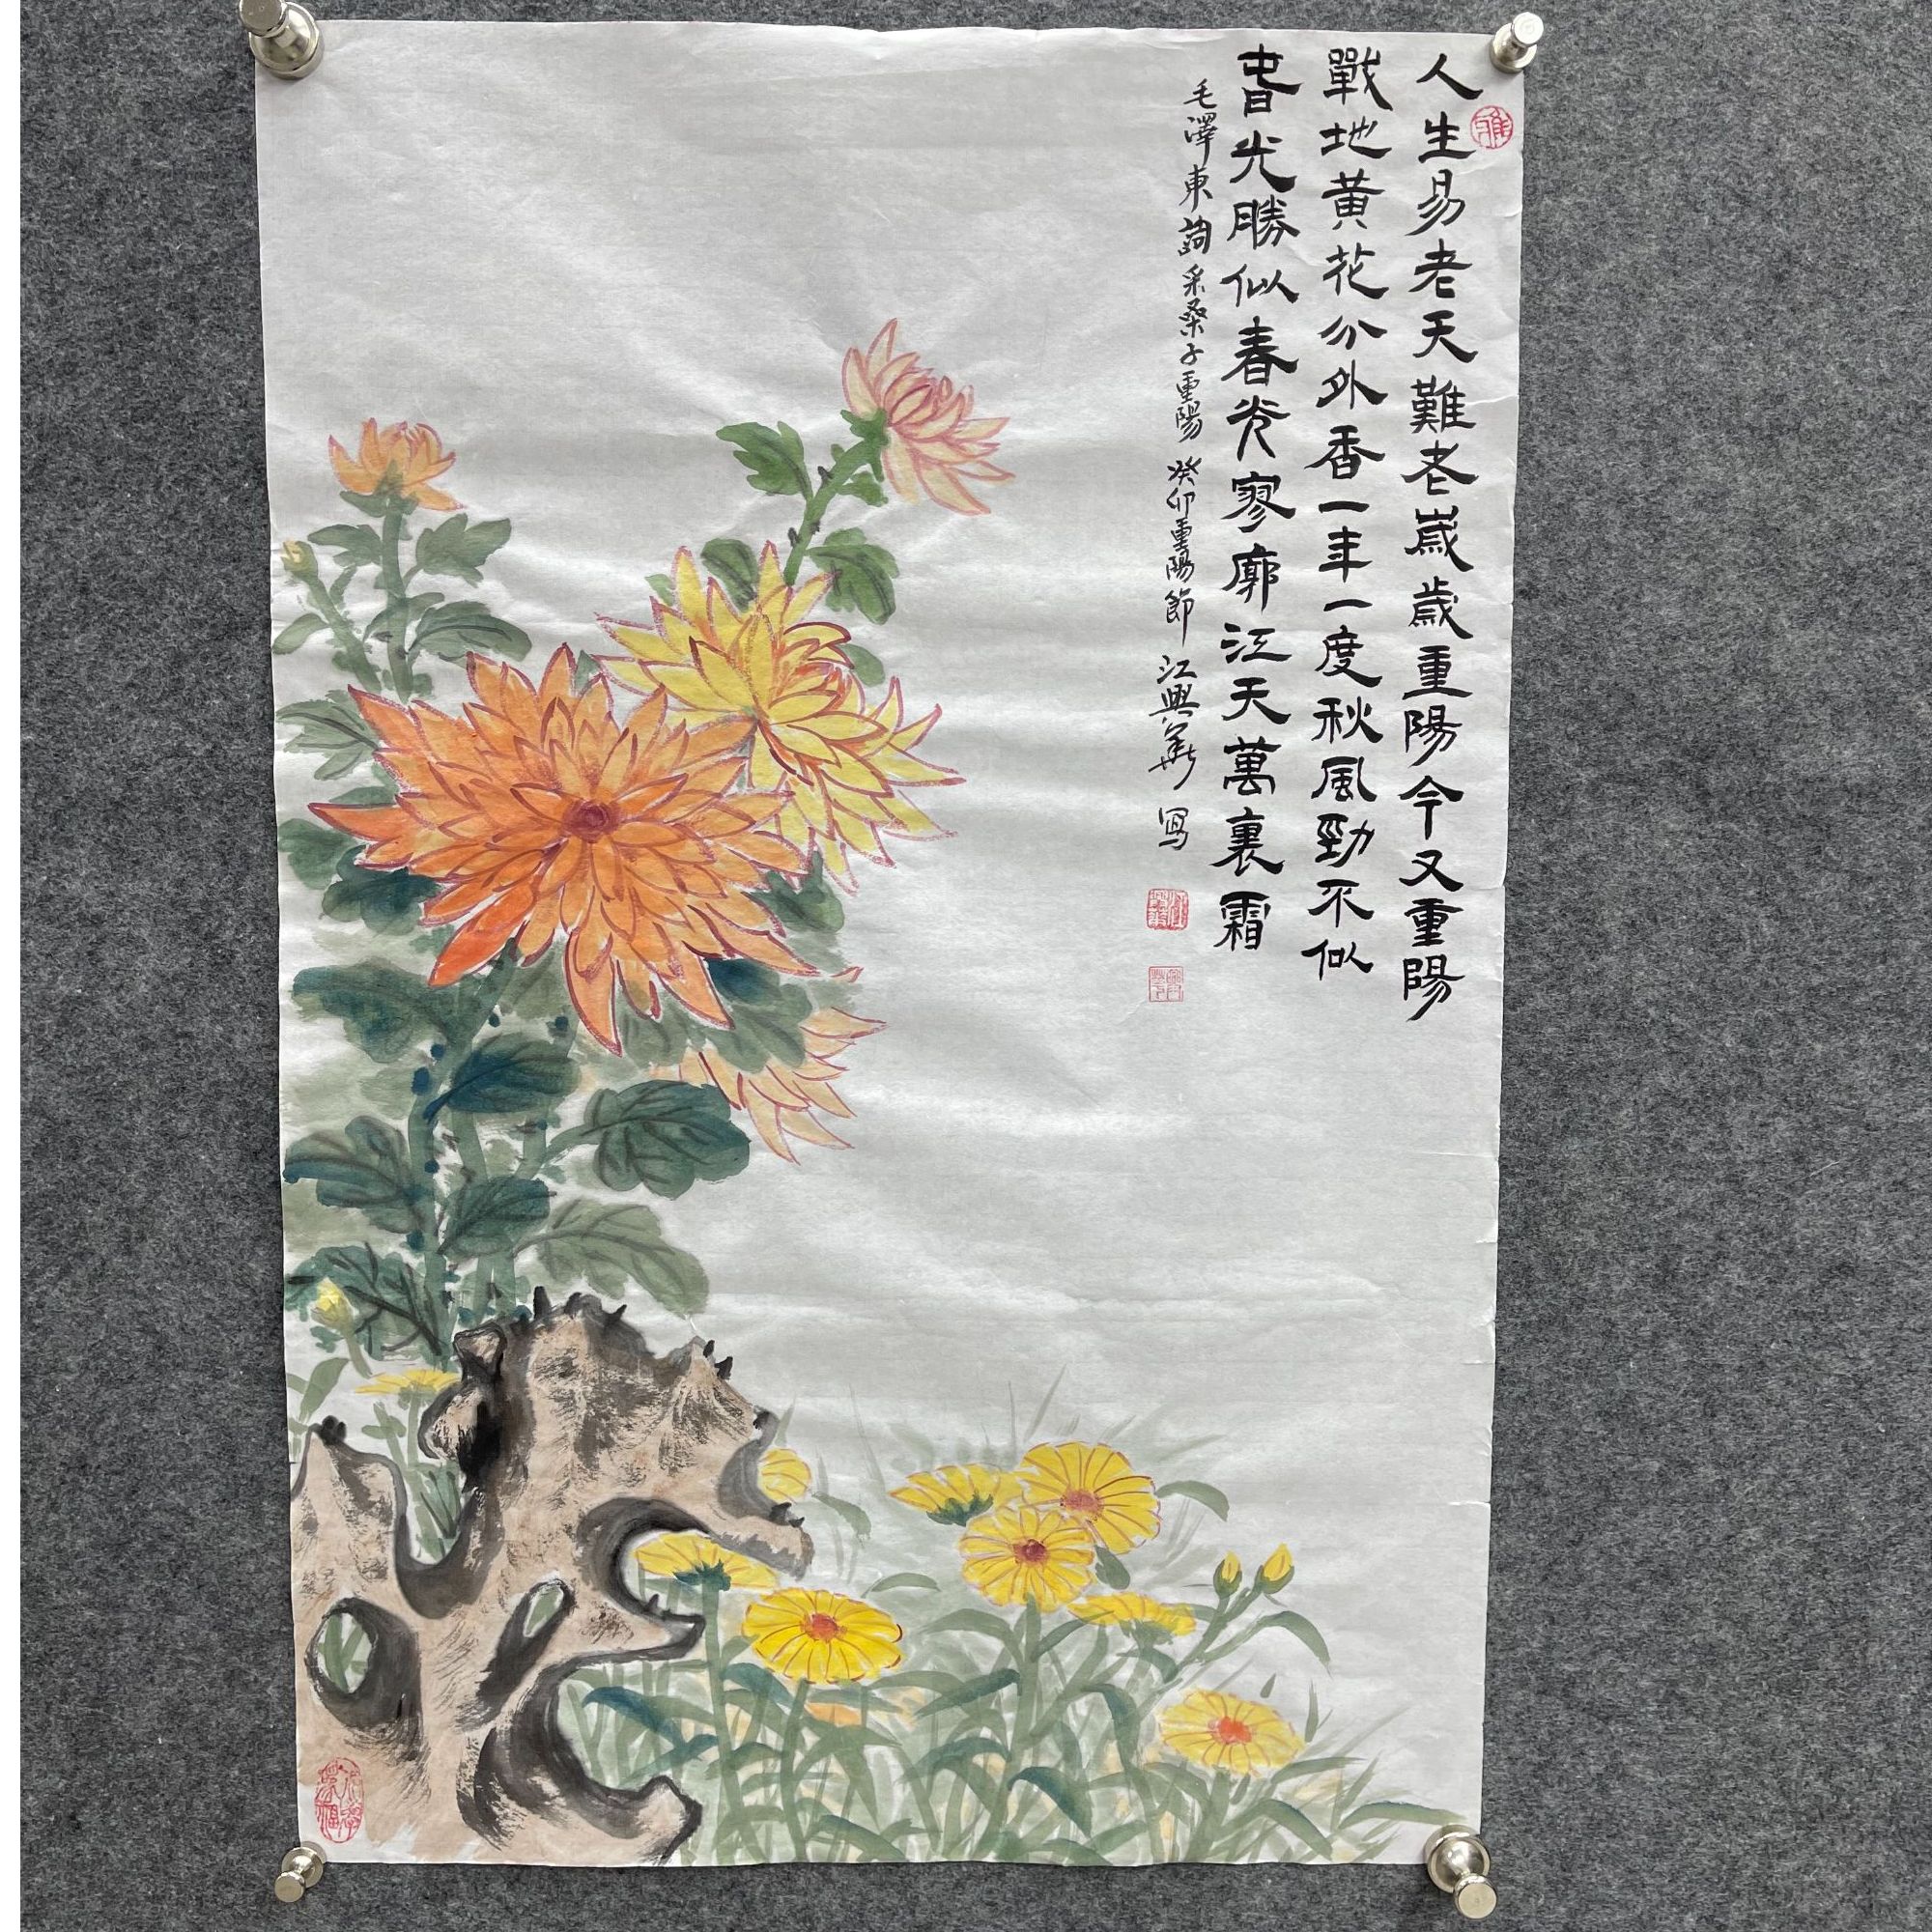 人生易老天難老歲歲重陽今又重陽
戰地黄花分外香一年一度秋風勁不似
旾光勝似春光寥廓江天萬裏霜
毛澤東詞采桑子重陽 癸卯重陽節 江興華 寫